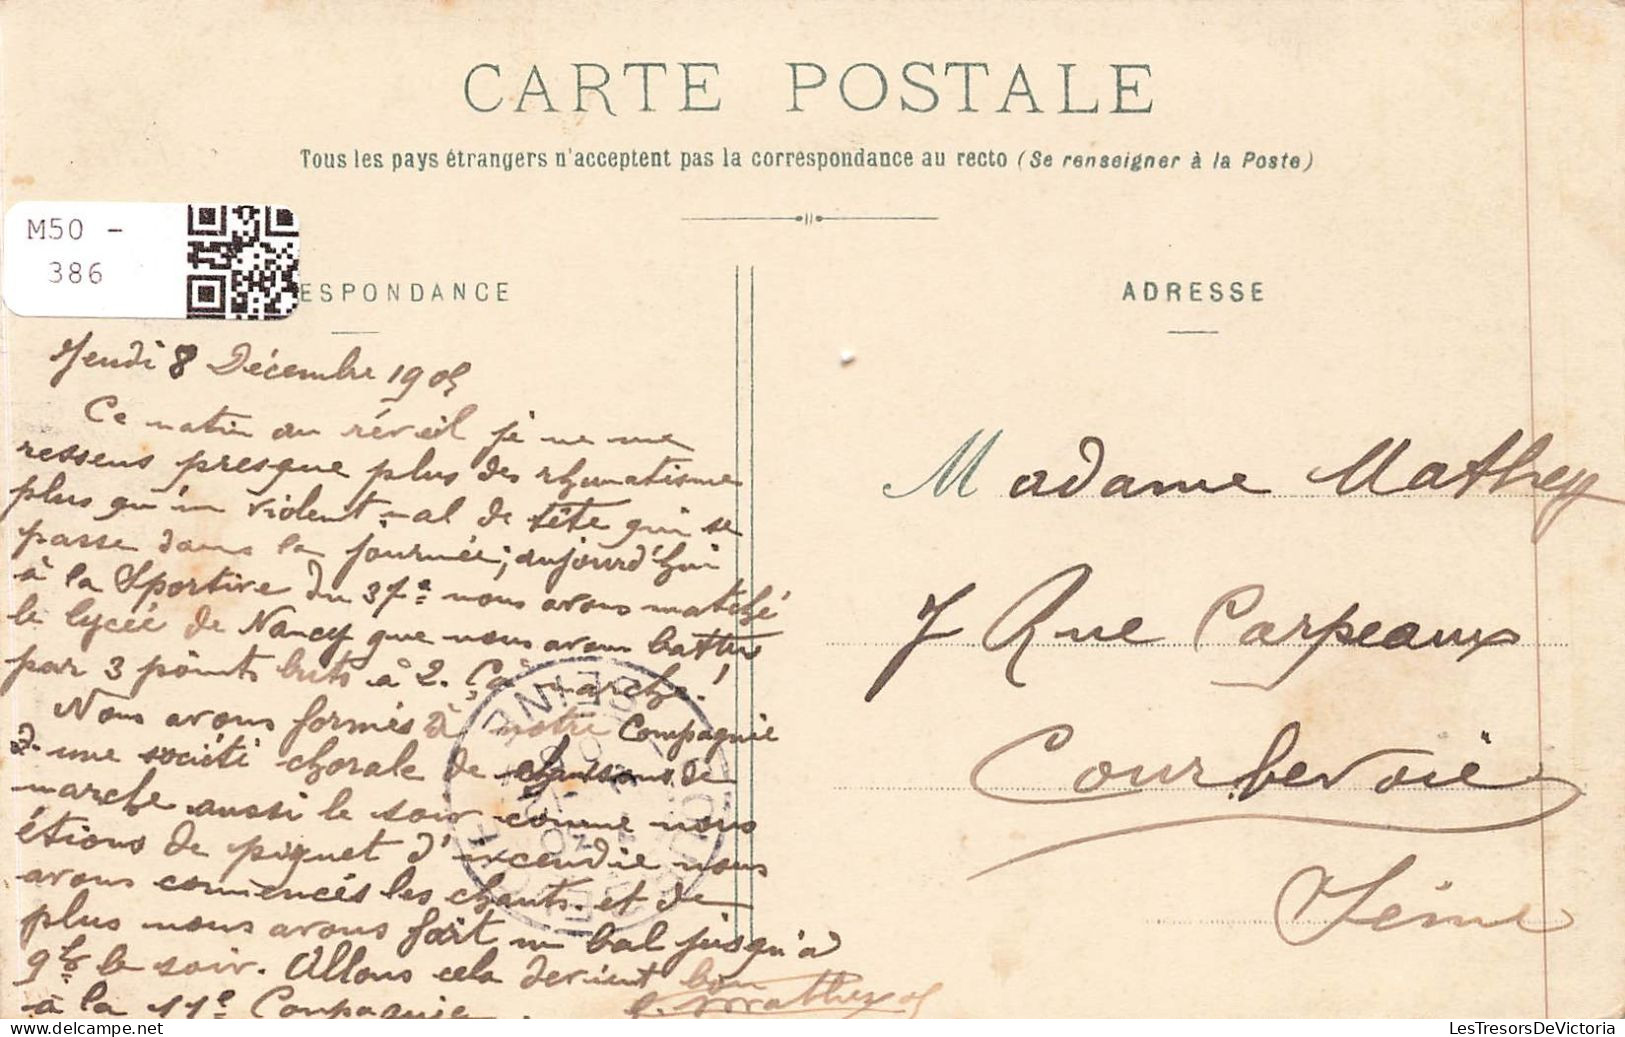 CARTE POSTALE
Tous les pays étrangers n'acceptent pas la correspondance au recto (Se renseigner à la Poste)
M50 -
386
ESPONDANCE
ADRESSE
Jeudi 8 Décembre 1905
Ce matin au réveil je ne me
ressens presque plus des rhumatismes
plus qu'un violent mal de tête qui se
passe dans la journée; aujourd'hui
à la Sportive du 37e nous avons matché
le lycée de Nancy que nous avons battus
par 3 points buts à 2. Ça marche!
Nous avons formés à notre Compagnie
une société chorale de chansons de
marche aussi le soir comme nous
étions de piquet d'incendie nous
avons comencés les chants. et de
plus nous avons fait un bal jusqu'à
9h le soir. Allons cela devient bon
à la 11e Compagnie.
Mathey
Madame Mathey
7 Rue Carpeaux
Courbevoie
Seine
LesTresorsDeVictoria.com